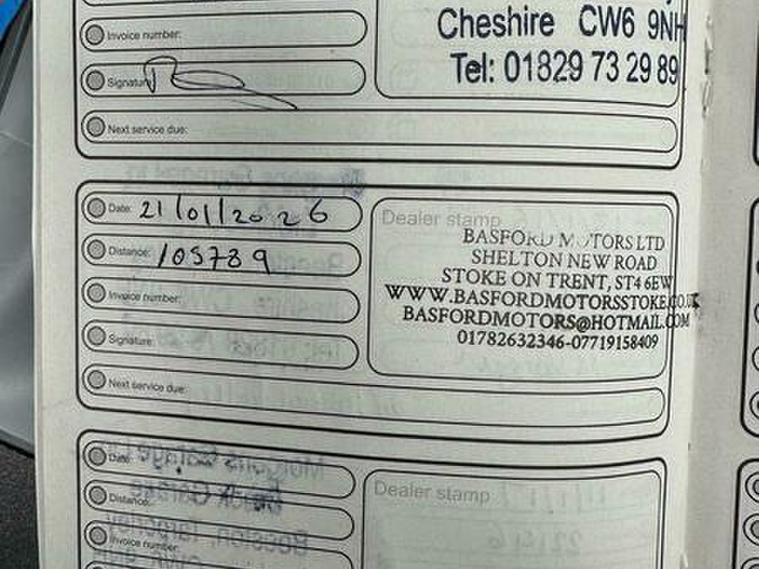 Cheshire CW6 9NH
Invoice number:
Signature:
Tel: 01829 73 29 89
Next service due:
Date: 21/01/2026
Dealer stamp
Distance: 105789
BASFORD MOTORS LTD
SHELTON NEW ROAD
STOKE ON TRENT, ST4 6EW
Invoice number:
WWW.BASFORDMOTORSSTOKE.CO.UK
BASFORDMOTORS@HOTMAIL.COM
Signature:
01782632346-07719158409
Next service due:
Date:
Distance:
Dealer stamp
Invoice number: